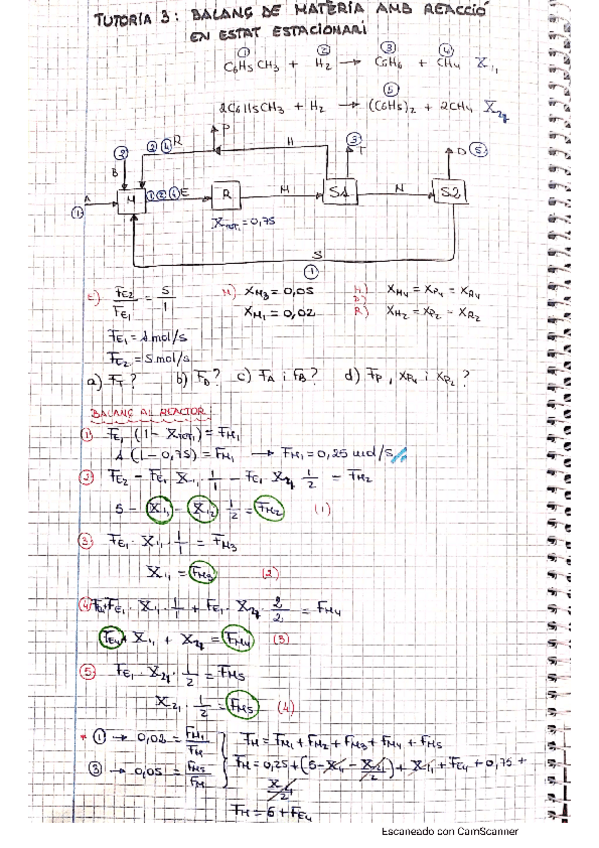 TUTORIA 3: BALANÇ DE MATÈRIA AMB REACCIÓ
EN ESTAT ESTACIONARI
① ② ③ ④
C6H5CH3 + H2 → C6H6 + CH4 X11
⑤
2C6H5CH3 + H2 → (C6H5)2 + 2CH4 X21
② ② ④ R P H ③ T D ⑤
B
① A M ① ② ④ E R M S1 N S2
XTOT1 = 0,75
S
①
E) FE2/FE1 = 5/1 M) XM3 = 0,05 H) XH4 = XP4 = XR4
P)
FE1 = 1 mol/s XM1 = 0,02 R) XH2 = XP2 = XR2
FE2 = 5 mol/s
a) FT? b) FD? c) FA i FB? d) FP, XP4 i XP2?
BALANÇ AL REACTOR:
① FE1 (1 - XTOT1) = FM1
1 (1 - 0,75) = FM1 → FM1 = 0,25 mol/s
② FE2 - FE1 X11 1/1 - FE1 X21 1/2 = FM2
5 - X11 - X21 1/2 = FM2 (1)
③ FE1 · X11 · 1/1 = FM3
X11 = FM3 (2)
④ FE4 + FE1 · X11 · 1/1 + FE1 · X21 · 2/2 = FM4
FE4 + X11 + X21 = FM4 (3)
⑤ FE1 · X21 · 1/2 = FM5
X21 · 1/2 = FM5 (4)
* ① → 0,02 = FM1/FM } FM = FM1 + FM2 + FM3 + FM4 + FM5
③ → 0,05 = FM3/FM } FM = 0,25 + (5 - X11 - X21/2) + X11 + FE4 + 0,75 +
X21/2
FM = 6 + FE4
Escaneado con CamScanner